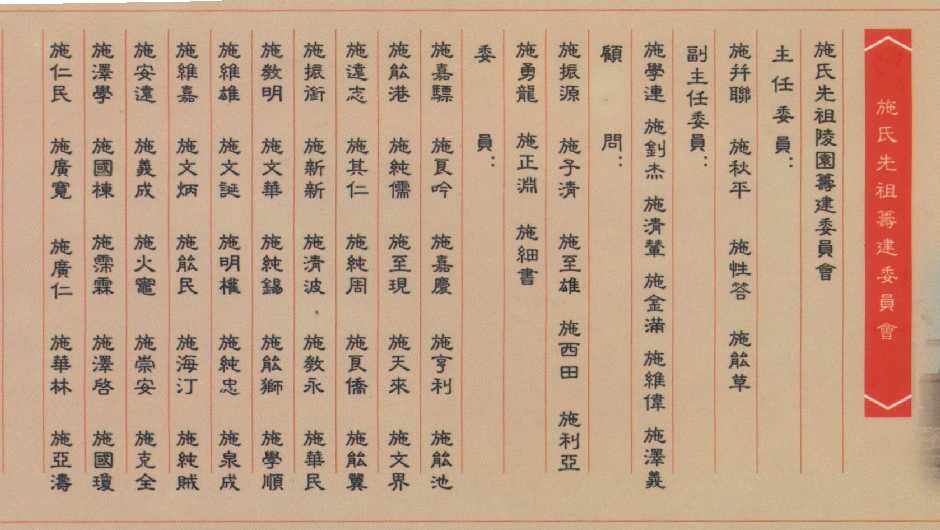 施氏先祖籌建委員會
施氏先祖陵園籌建委員會
主任委員：
施并聯 施秋平 施性答 施能草
副主任委員：
施學連 施釗杰 施清輦 施金滿 施維偉 施澤義
顧問：
施振源 施子清 施至雄 施西田 施利亞
施勇龍 施正淵 施細書
委員：
施嘉驃 施良吟 施嘉慶 施亨利 施能池
施能港 施純儒 施至現 施天來 施文界
施遠志 施其仁 施純周 施良僑 施能翼
施振銜 施新新 施清波 施教永 施華民
施教明 施文華 施純錫 施能獅 施學順
施維雄 施文誕 施明權 施純忠 施泉成
施維嘉 施文炳 施能民 施海汀 施純賊
施安遠 施義成 施火竈 施崇安 施克全
施澤學 施國棟 施霈霖 施澤啓 施國瓊
施仁民 施廣寬 施廣仁 施華林 施亞濤